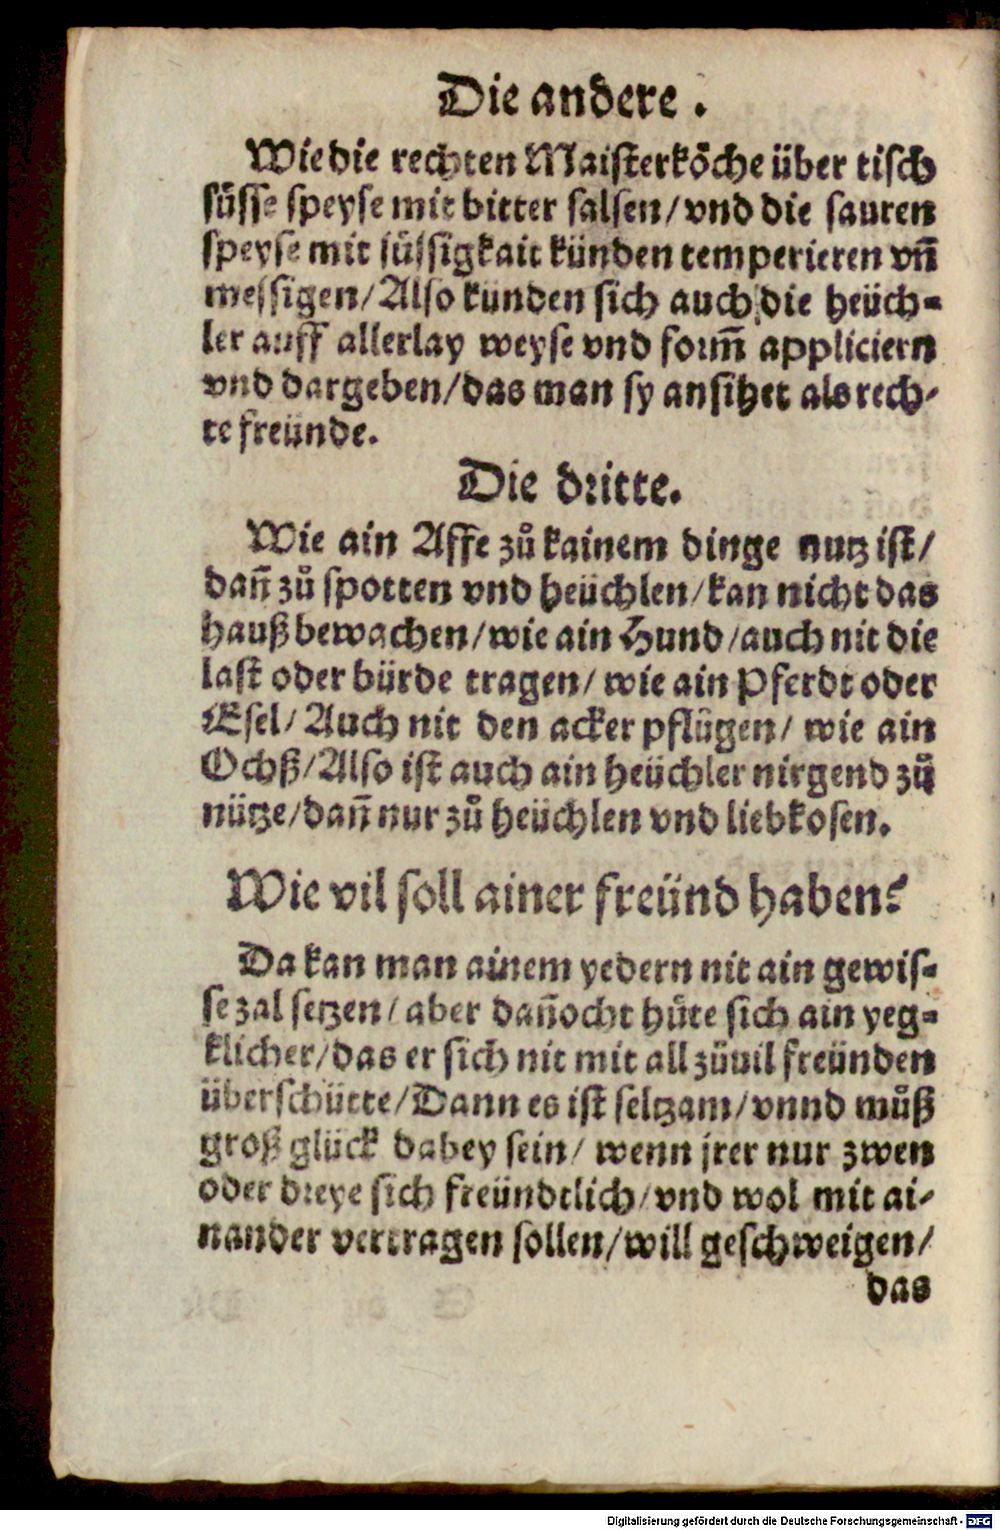 Die andere.
Wie die rechten Maisterköche über tisch
süsse speyse mit bitter salsen/vnd die sauren
speyse mit süssigkait künden temperieren vn̄
messigen/Also kunden sich auch die heüch-
ler auff allerlay weyse vnd form̄ appliciern
vnd dargeben/das man sy ansihet als rech-
te freünde.
Die dritte.
Wie ain Affe zů kainem dinge nutz ist/
dan̄ zů spotten vnd heüchlen/kan nicht das
hauß bewachen/wie ain Hund/auch nit die
last oder bürde tragen/wie ain Pferdt oder
Esel/Auch nit den acker pflügen/wie ain
Ochß/Also ist auch ain heüchler nirgend zů
nütze/dan̄ nur zů heüchlen vnd liebkosen.
Wie vil soll ainer freünd haben?
Da kan man ainem yedern nit ain gewis-
se zal setzen/aber dan̄ocht hüte sich ain yeg-
klicher/das er sich nit mit all züuil freünden
überschütte/Dann es ist seltzam/vnnd můß
groß glück dabey sein/wenn jrer nur zwen
oder dreye sich freündtlich/vnd wol mit ai-
nander vertragen sollen/will geschweigen/
das
Digitalisierung gefördert durch die Deutsche Forschungsgemeinschaft - DFG